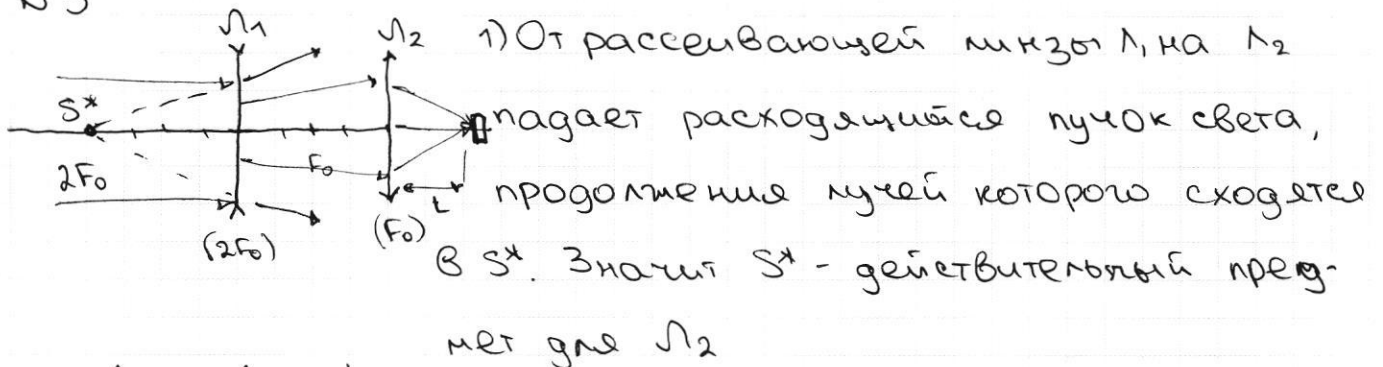 Л1 Л2 1) От рассеивающей линзы Л1 на Л2
S* падает расходящийся пучок света,
2F₀ F₀ L продолжения лучей которого сходятся
(2F₀) (F₀) в S*. Значит S* - действительный пред-
мет для Л2